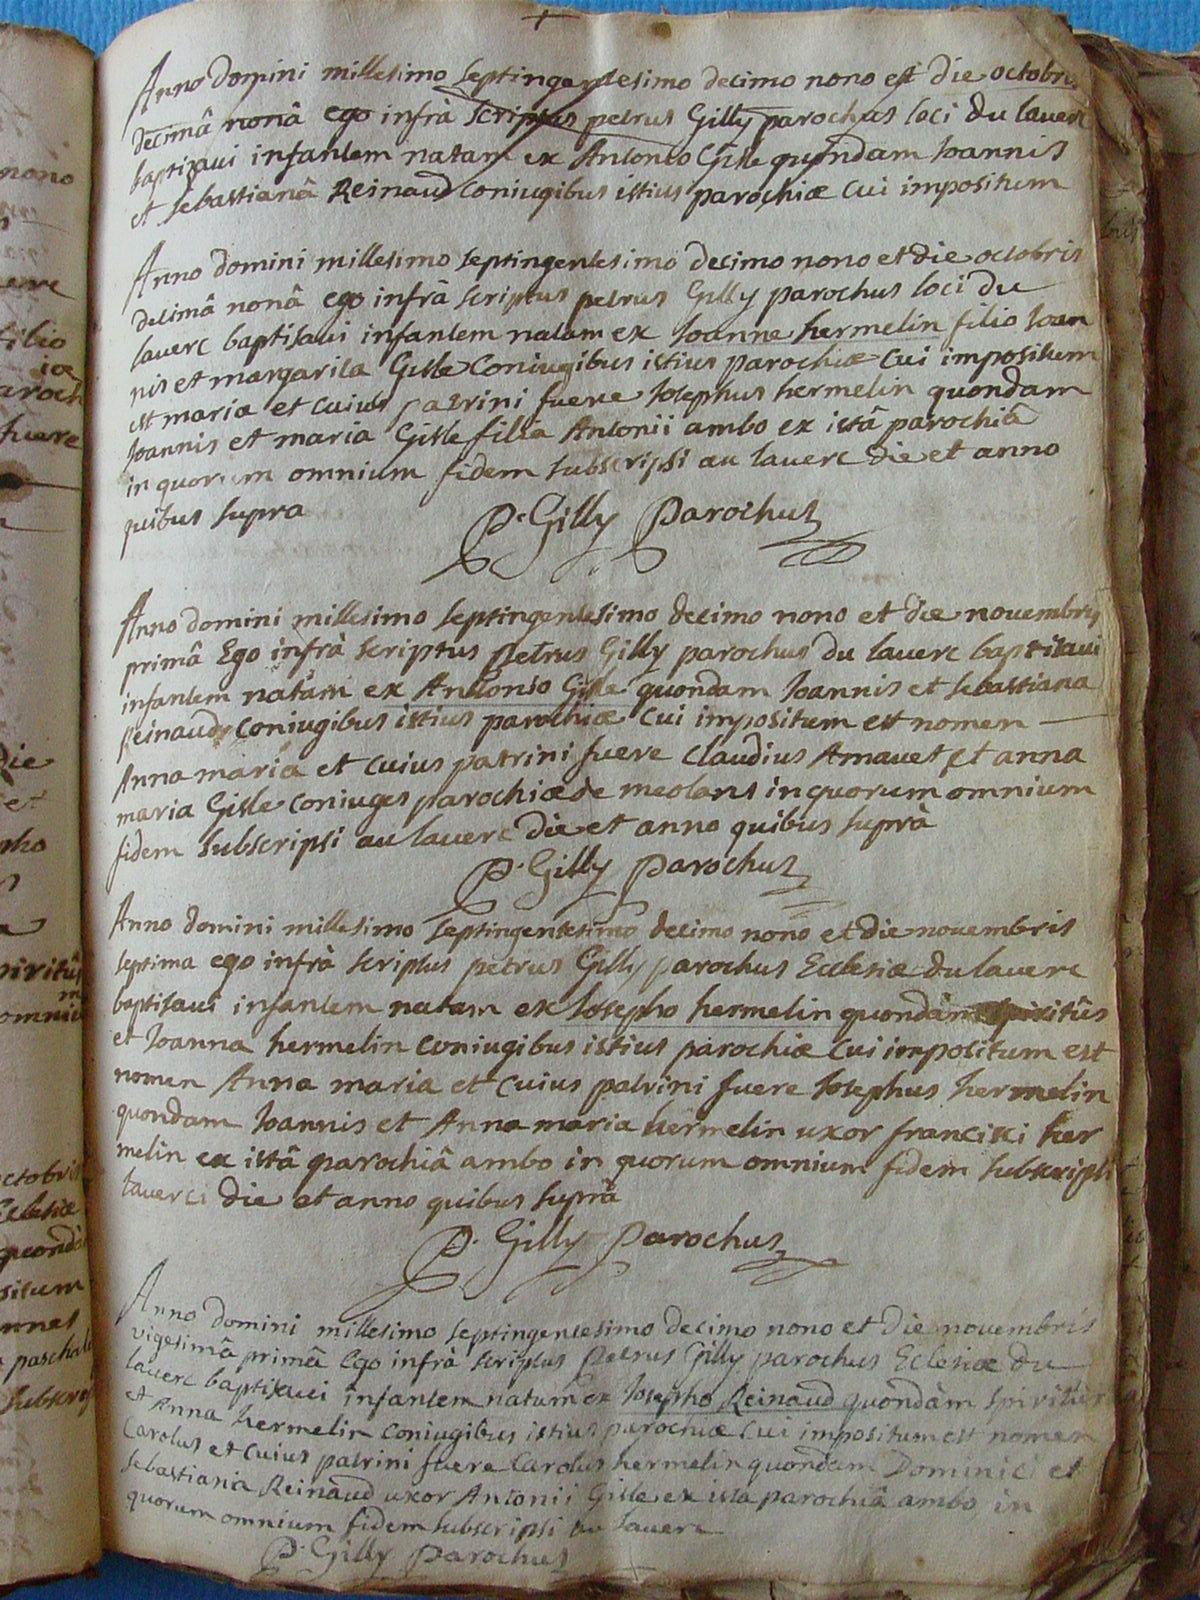 Anno domini millesimo septingentesimo decimo nono et die octobris
decimâ nonâ ego infrà scriptus petrus Gilly parochus loci du lauerc
baptisaui infantem natam ex Antonio Gisle quondam Ioannis
et sebastianâ Reinaud coniugibus istius parochiæ cui impositum
Anno domini millesimo septingentesimo decimo nono et die octobris
decimâ nonâ ego infrà scriptus petrus Gilly parochus loci du
lauerc baptisaui infantem natam ex Ioanne hermelin filio Ioan
nis et margarita Gisle Coniugibus istius parochiæ cui impositum
est maria et cuius patrini fuere Iosephus hermelin quondam
Ioannis et maria Gisle filia Antonii ambo ex istâ parochiâ
in quorum omnium fidem subscripsi au lauerc die et anno
quibus supra
P. Gilly Parochus
Anno domini millesimo septingentesimo decimo nono et die novembris
primâ Ego infrà scriptus petrus Gilly parochus du lauerc baptisaui
infantem natam ex Antonio Gisle quondam Ioannis et sebastiana
reinaud coniugibus istius parochiæ cui impositum est nomen
Anna maria et cuius patrini fuere claudius Amauet et anna
maria Gisle coniuges parochiæ de meolans in quorum omnium
fidem subscripsi au lauerc die et anno quibus suprà
P. Gilly parochus
Anno domini millesimo septingentesimo decimo nono et die nouembris
septima ego infrà scriptus petrus Gilly parochus Ecclesiæ du lauerc
baptisaui infantem natam ex Iosepho hermelin quondàm spiritûs
et Ioanna hermelin coniugibus istius parochiæ cui impositum est
nomen Anna maria et cuius patrini fuere Iosephus hermelin
quondam Ioannis et Anna maria hermelin uxor francisci her
melin ex istâ parochiâ ambo in quorum omnium fidem subscripsi
lauerci die et anno quibus suprà
P. Gilly parochus
Anno domini millesimo septingentesimo decimo nono et die nouembris
vigesimâ primâ Ego infrà scriptus Petrus Gilly parochus Eclesiæ du
lauerc baptisaui infantem natum ex Iosepho Reinaud quondàm spiritûs
et Anna hermelin coniugibus istius parochiæ cui impositum est nomen
Carolus et cuius patrini fuere Carolus hermelin quondam Dominici et
sebastiana Reinaud uxor Antonii Gisle ex ista parochiâ ambo in
quorum omnium fidem subscripsi au lauerc
P. Gilly parochus